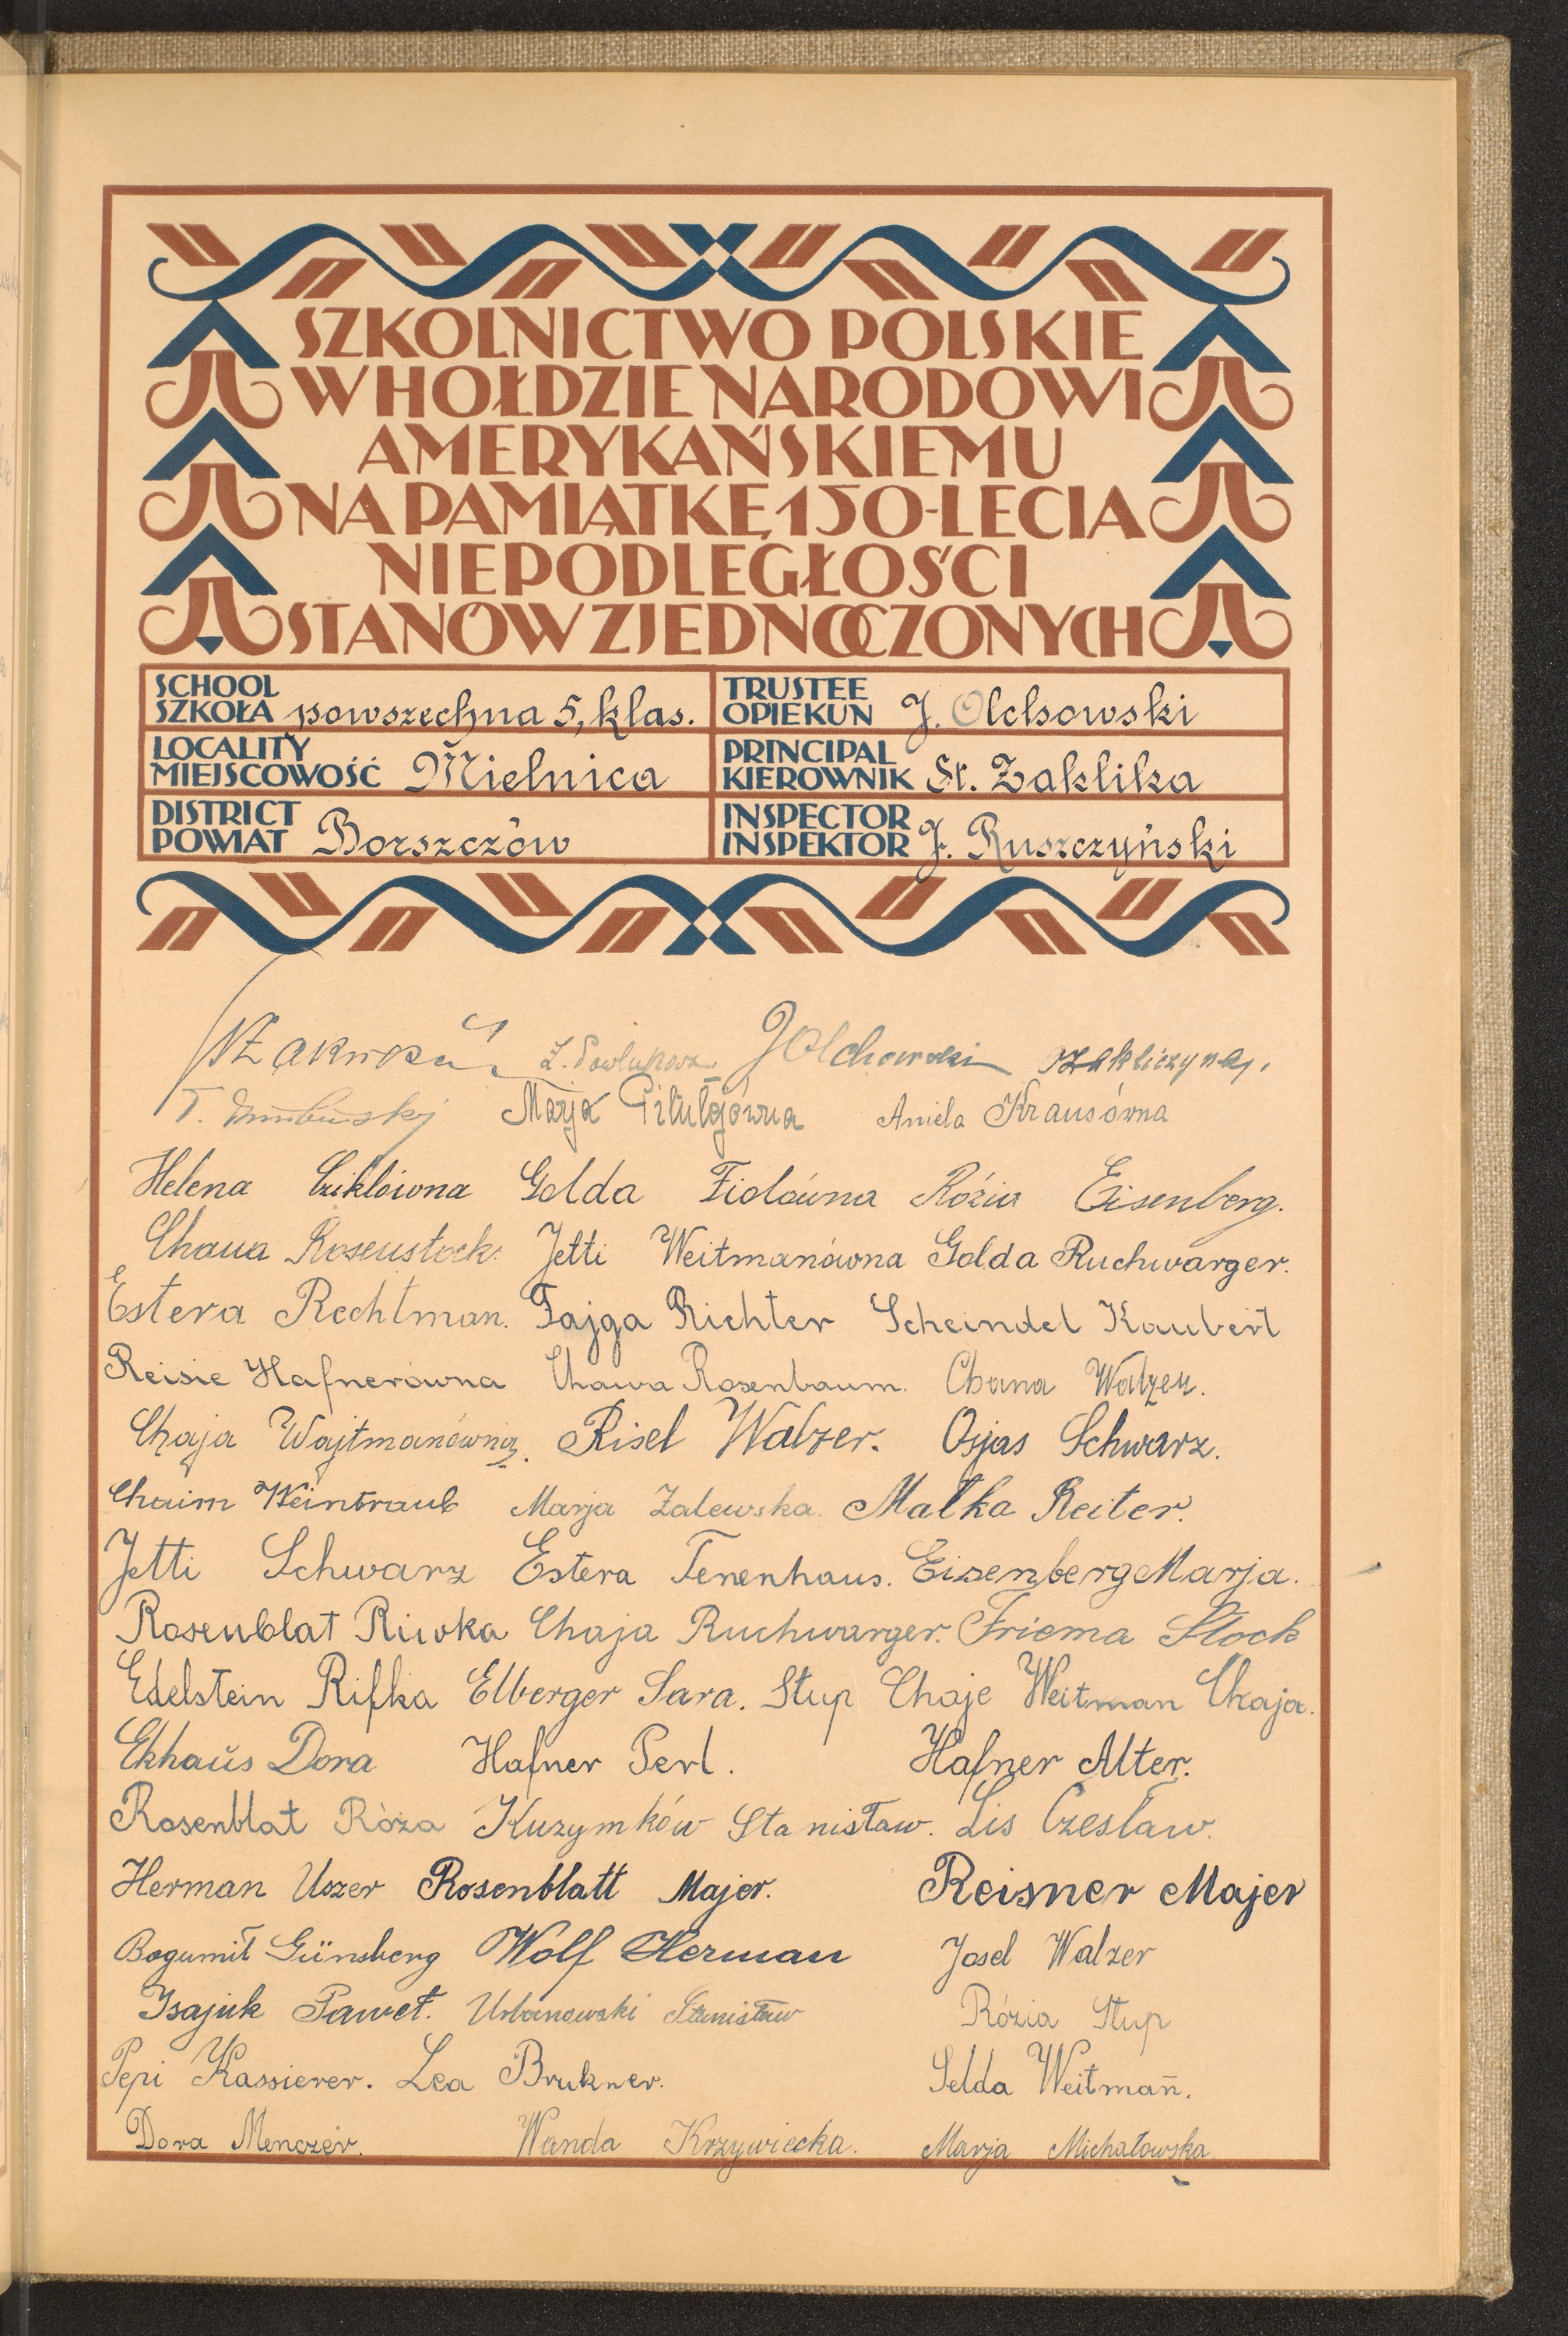 SZKOLNICTWO POLSKIE
W HOŁDZIE NARODOWI
AMERYKAŃSKIEMU
NA PAMIĄTKĘ 150-LECIA
NIEPODLEGŁOŚCI
STANÓW ZJEDNOCZONYCH
SCHOOL
SZKOŁA powszechna 5, klas.
TRUSTEE
OPIEKUN J. Olchowski
LOCALITY
MIEJSCOWOŚĆ Mielnica
PRINCIPAL
KIEROWNIK St. Zaklika
DISTRICT
POWIAT Borszczów
INSPECTOR
INSPEKTOR J. Ruszczyński
JOlchowski
Marja Pitułgówna Aniela Krausówna
Helena Cziklówna Golda Fiolówna Rózia Eisenberg.
Chaua Rosenstock. Jetti Weitmanówna Golda Ruchwarger.
Estera Rechtman. Fajga Richter Scheindel Kaubert
Reisie Hafnerówna Chawa Rosenbaum. Chana Walzer.
Chaja Wajtmanówna. Risel Walzer. Osjas Schwarz.
Chaim Weintraub Marja Zalewska. Malka Reiter.
Jetti Schwarz Estera Tenenhaus. Eisenberg Marja.
Rosenblat Riwka Chaja Ruchwarger. Friema Stock
Edelstein Rifka Elberger Sara. Stup Chaje Weitman Chaja.
Ekhaŭs Dora Hafner Perl. Hafner Alter.
Rosenblat Róża Kuzymków Stanisław. Lis Czesław.
Herman Uszer Rosenblatt Majer. Reisner Majer
Bogumił Günsberg Wolf Herman Josel Walzer
Isajuk Paweł. Urbanowski Stanisław Rózia Stup
Pepi Kassierer. Lea Brukner. Selda Weitman̄.
Dora Menczer. Wanda Krzywiecka. Marja Michałowska